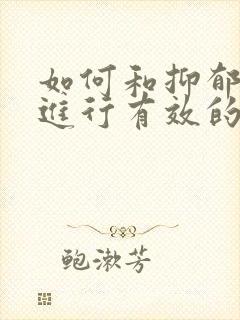 如何和抑郁
进行有效的
鲍漱芳